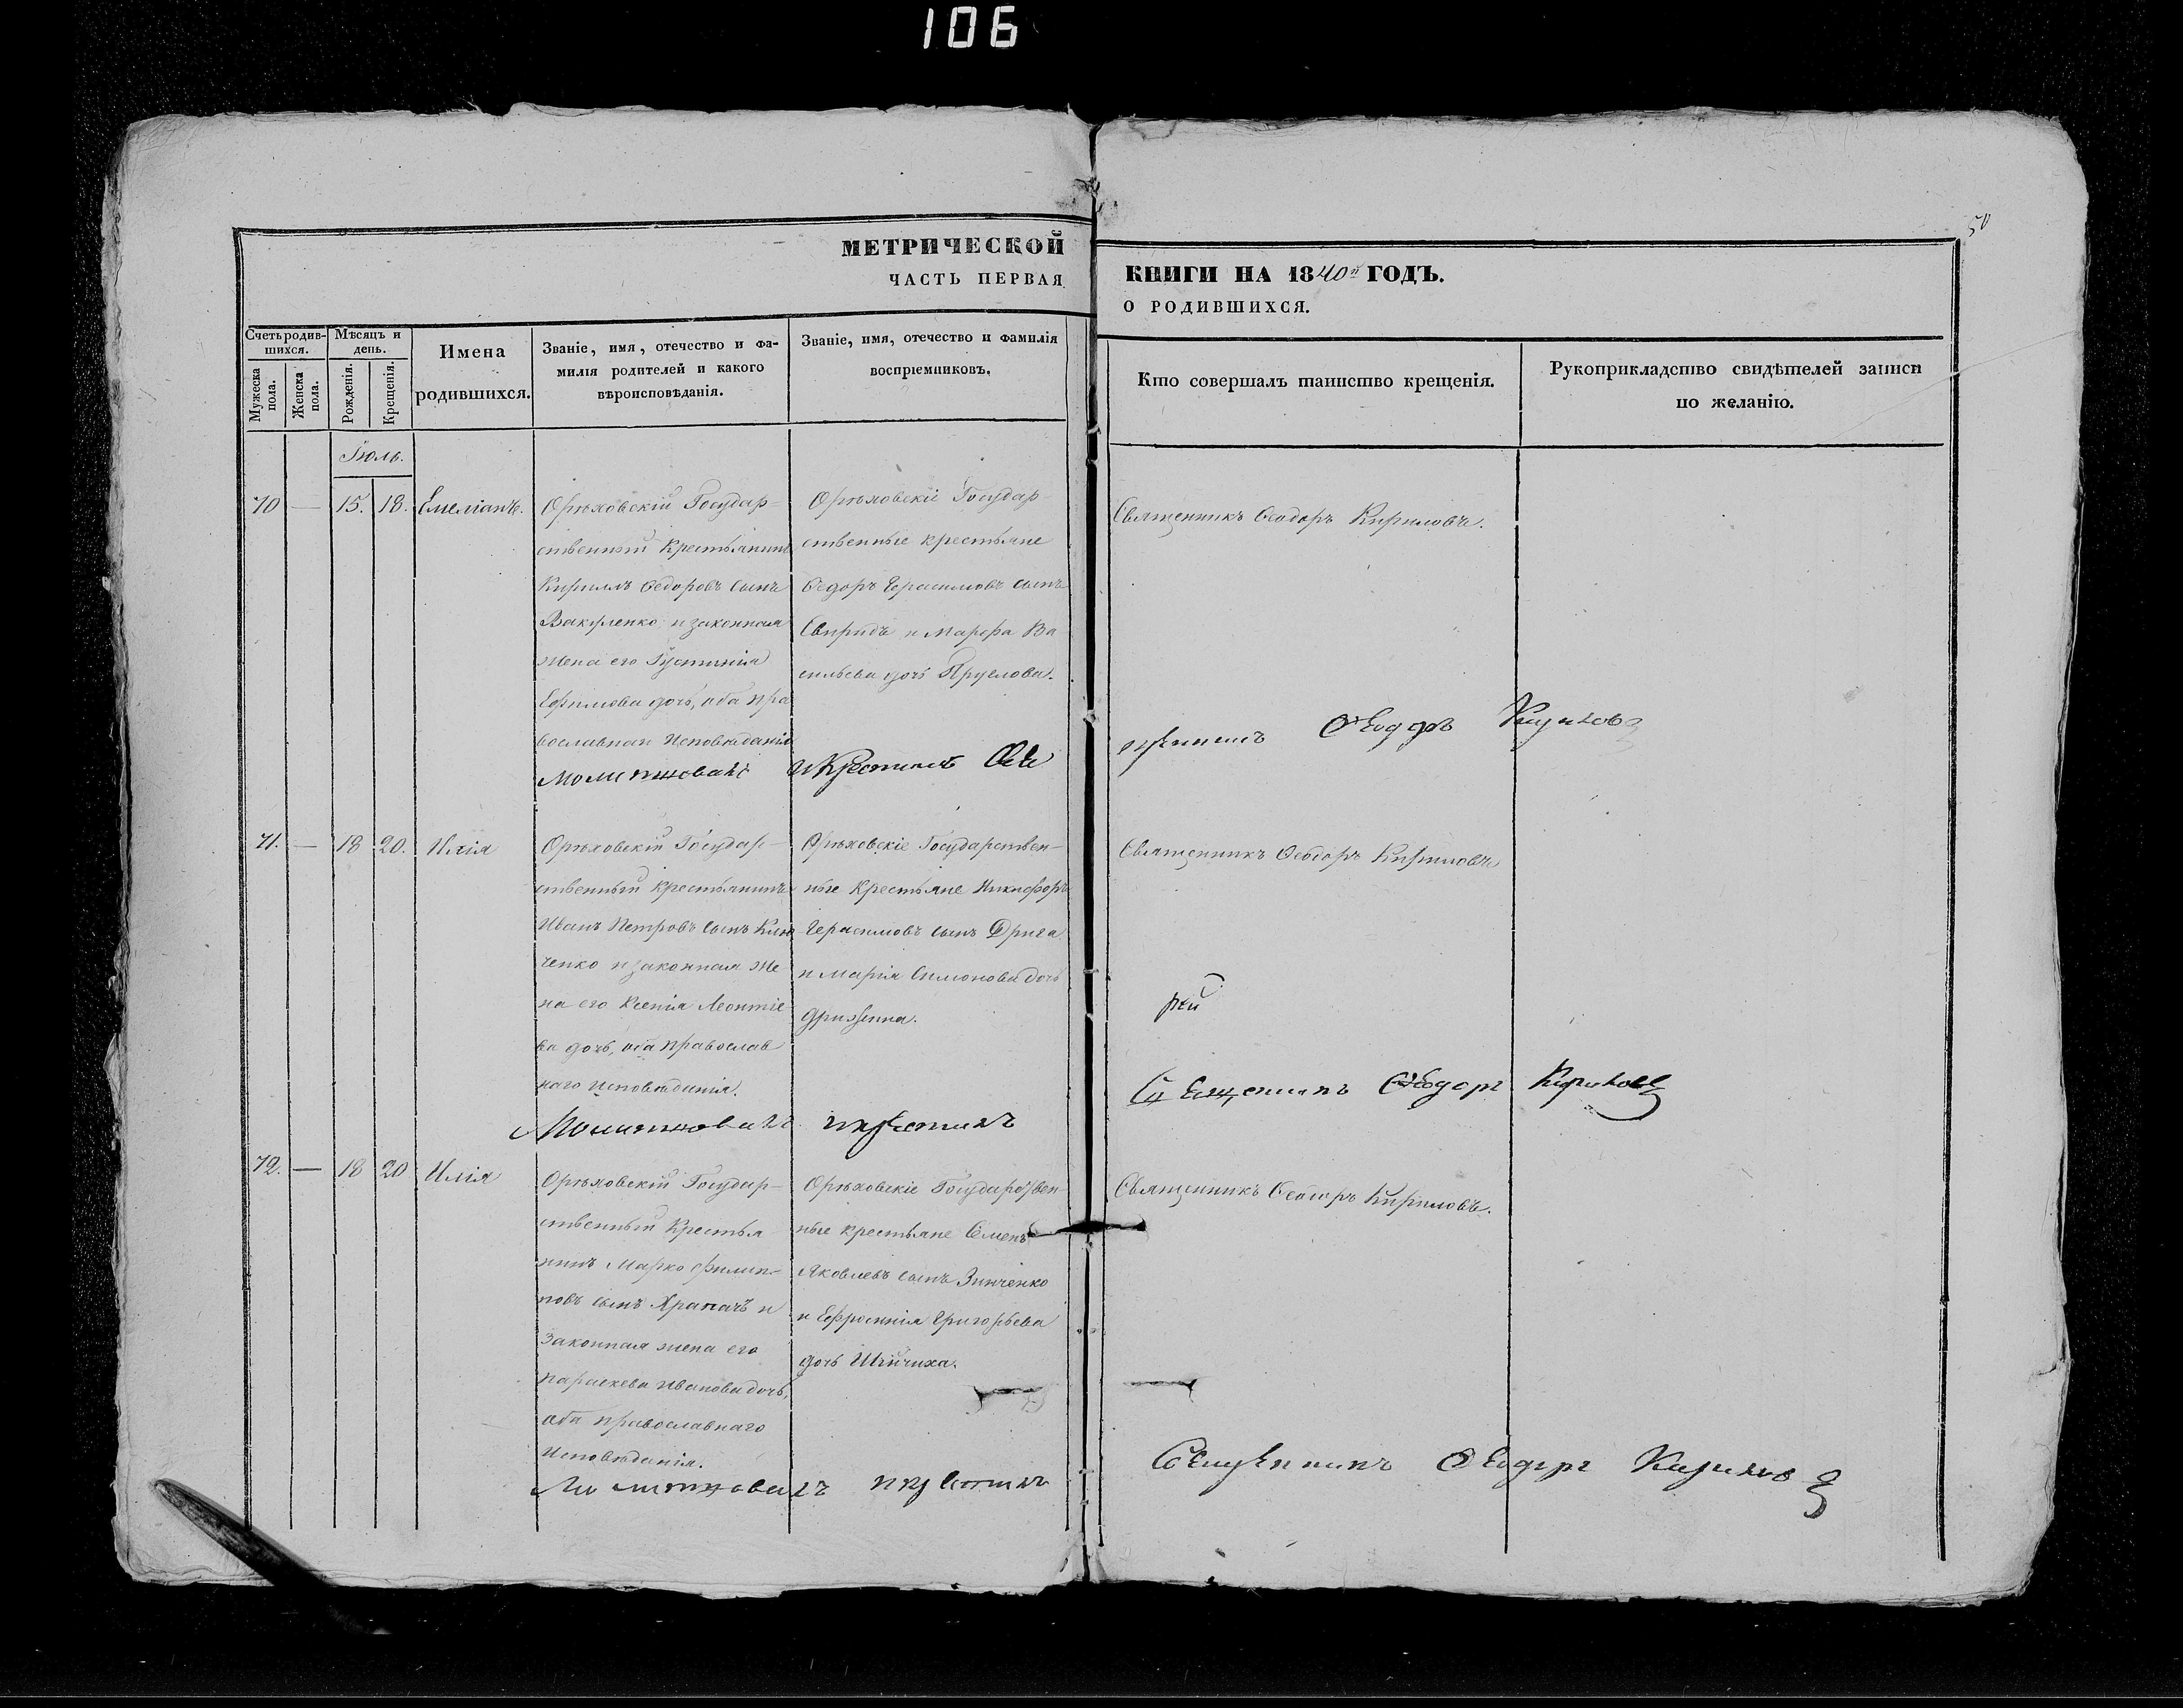 106
50
МЕТРИЧЕСКОЙ
ЧАСТЬ ПЕРВАЯ
КНИГИ НА 1840й ГОДЪ.
О РОДИВШИХСЯ.
Счетъ родив-
шихся.
Мужеска пола.
Женска пола.
Мѣсяцъ и
день.
Рожденія.
Крещенія.
Имена
родившихся.
Званіе, имя, отечество и фа-
милія родителей и какого
вѣроисповѣданія.
Званіе, имя, отечество и фамилія
воспріемниковъ.
Кто совершалъ таинство крещенія.
Рукоприкладство свидѣтелей записи
по желанію.
Іюль.
70 — 15. 18. Емеліанъ.
Орѣховскій Государ-
ственный Крестьянинъ
Кириллъ Ѳедоровъ сынъ
Вакуленко и законная
жена его Іустинія
Ефимова дочь, оба пра
вославнаго Исповѣданія
Орѣховскіе Государ-
ственные крестьяне
Ѳедоръ Герасимовъ сынъ
Свиридъ и Марфа Ва
сильева дочь
Священникъ Ѳеодоръ Кириловъ.
Молитвовалъ и Крестилъ Ѳеодоръ Кирилов
71. — 18 20. Илія
Орѣховскій Государ-
ственный крестьянинъ
Иванъ Петровъ сынъ
ченко и законная же-
на его Ксенія Леонтіе
ва дочь, оба православ
наго Исповѣданія.
Орѣховскіе Государствен-
ные Крестьяне Никифоръ
Герасимовъ сынъ Дрига
и Марія Симонова дочь
Священникъ Ѳеодоръ Кириловъ
рей
Молитвовалъ и крестилъ Священникъ Ѳеодоръ Кирилов
72. — 18 20 Илія
Орѣховскій Государ-
ственный Крестья-
нинъ Марко Филип-
повъ сынъ Храпачъ и
законная жена его
Параскева Иванова дочь,
оба православнаго
Исповѣданія.
Орѣховскіе Государствен-
ные крестьяне Семенъ
Яковлевъ сынъ Зинченко
и Ефросинія Григорьева
дочь
Священникъ Ѳеодоръ Кириловъ.
Молитвовалъ и крестилъ Священникъ Ѳеодоръ Кирилов